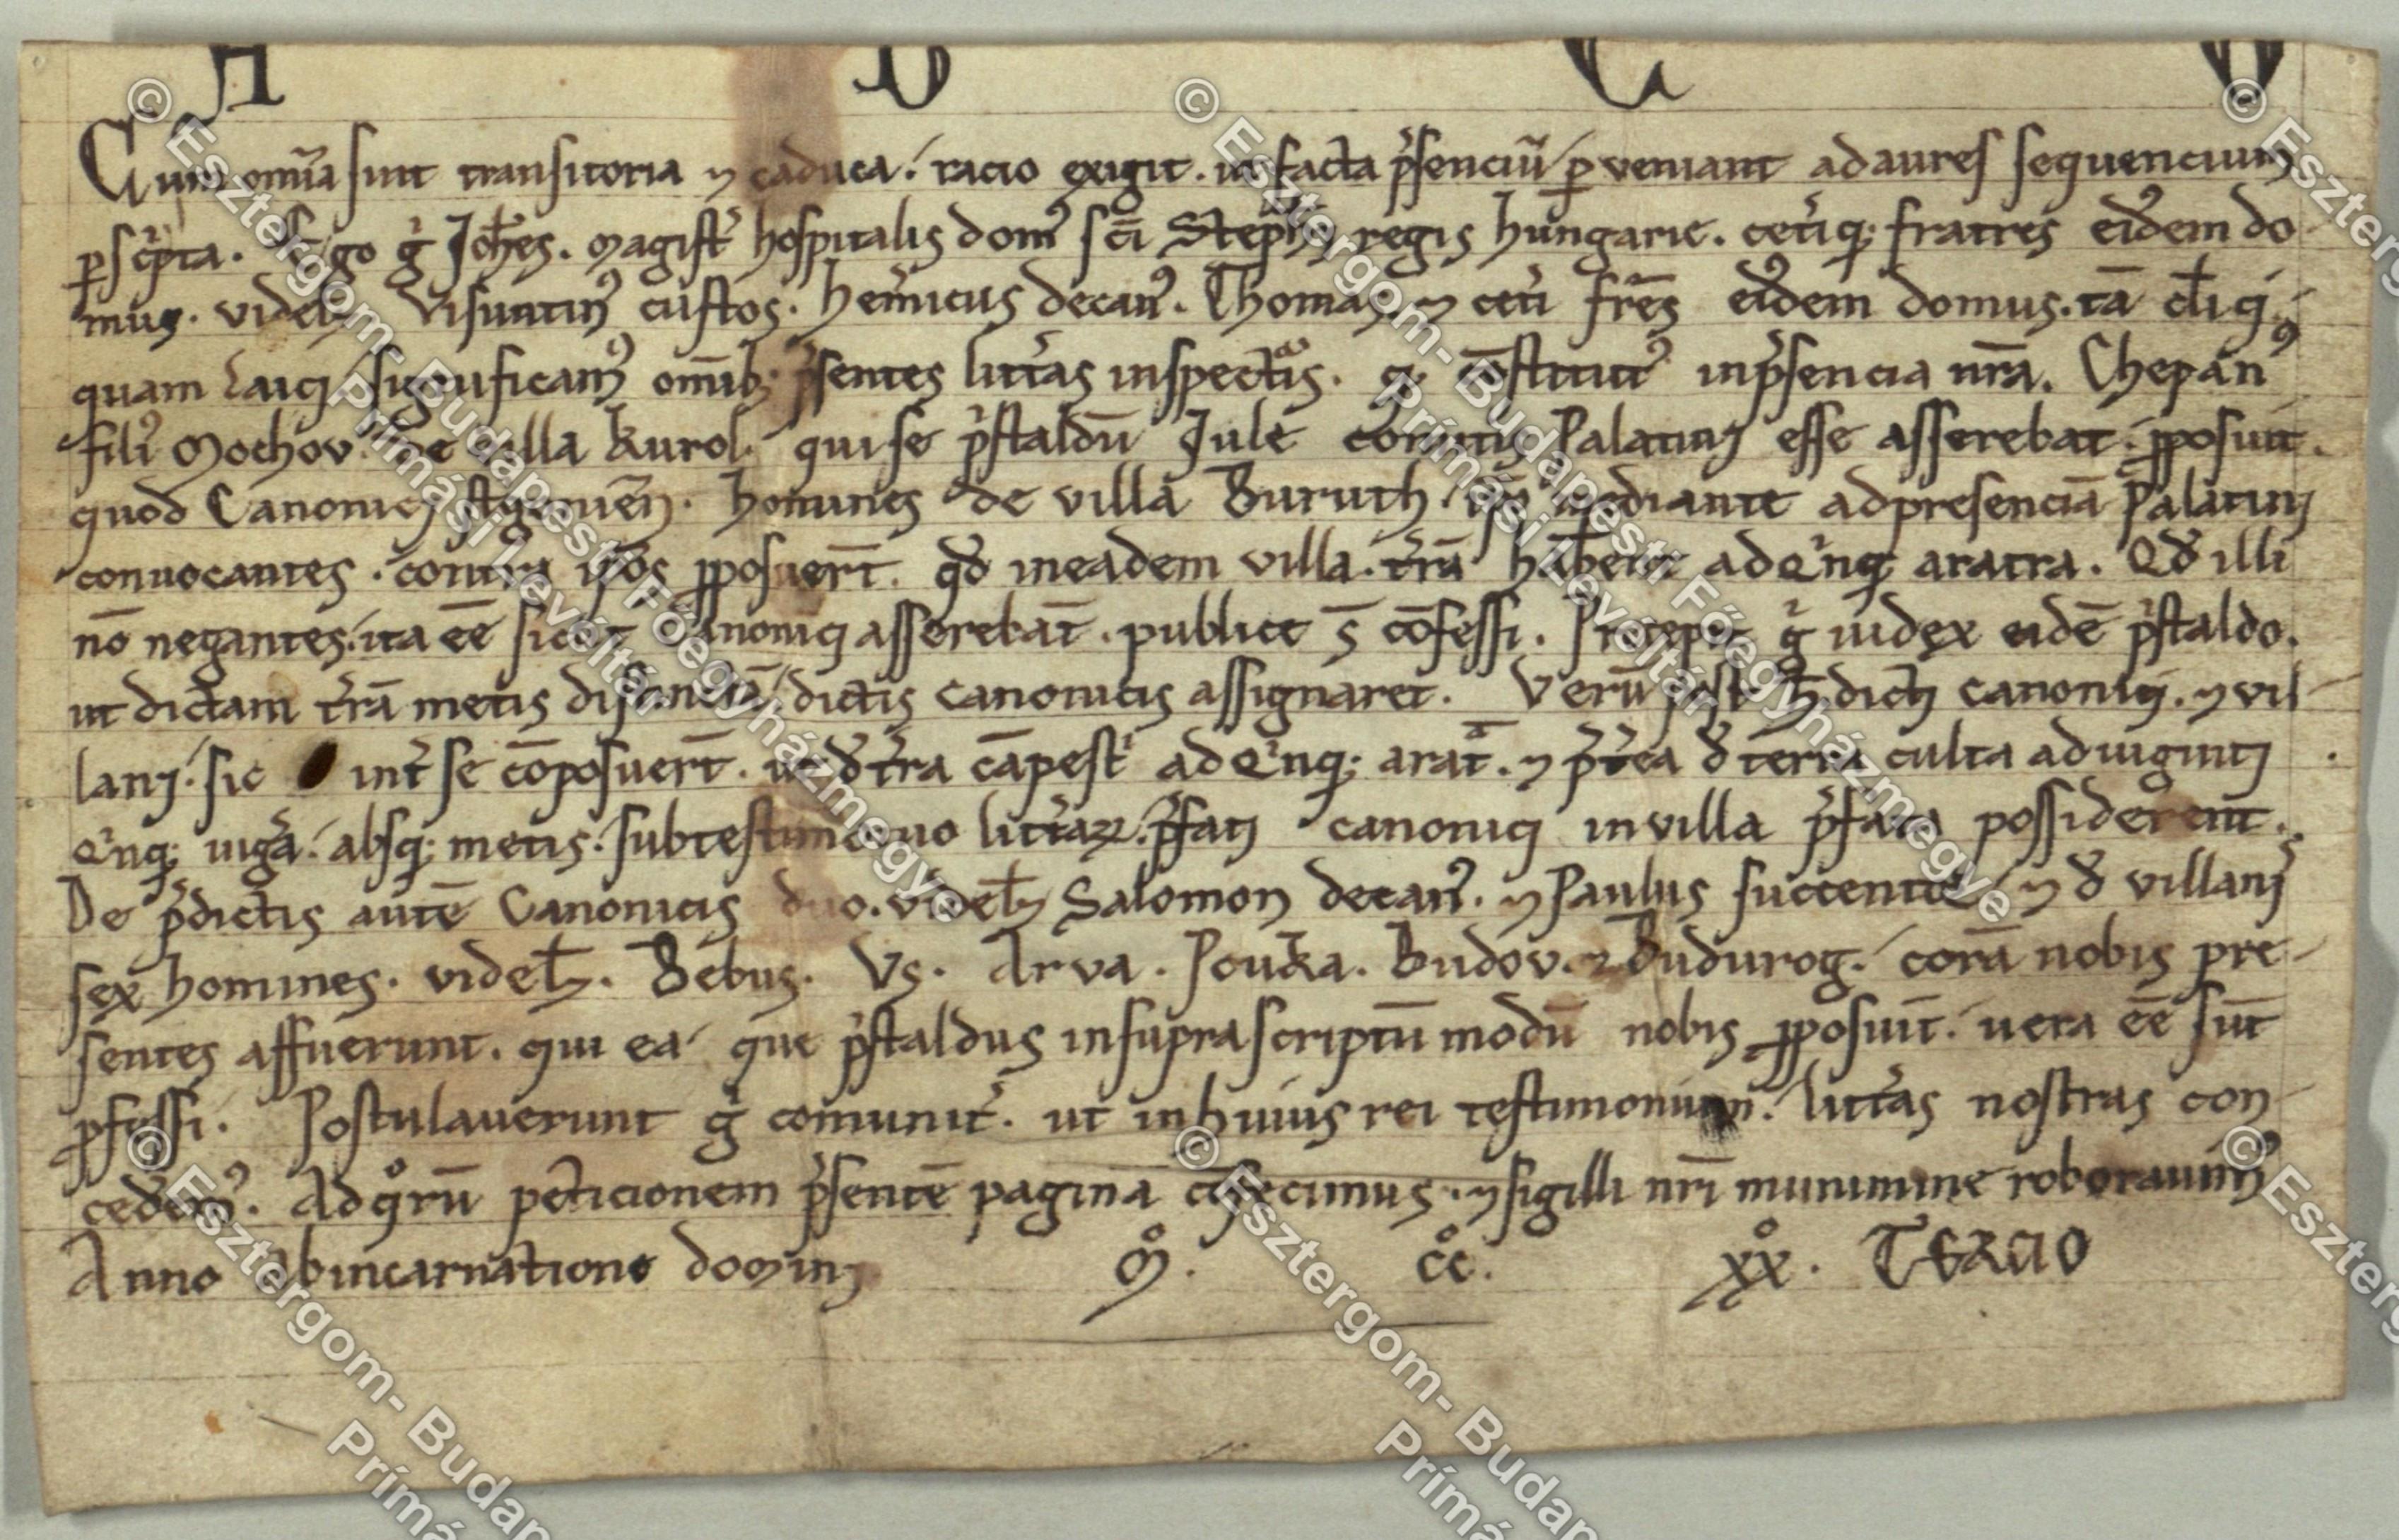 A B C D
Cum om̄ia sint transitoria ⁊ caduca. racio exigit. ut facta p̄senciū ꝑveniant ad aures sequencium
ꝑscᵢpta. Ego gͥ Joh̄es. magistʼ hospitalis domꝰ sc̄i Steph̄i regis hungarie. ceteriqꝫ fratres eiꝰdem do
mus. videlꝫ Visuntinꝰ custos. henricus decanꝰ. Thomas. ⁊ ceti fr̄es eiꝰdem domus. tā cl̄ici
quam laici significamꝰ om̄ibꝫ p̄sentes litt̓as inspectᵃis. qͥ constitutꝰ in p̄sencia nr̄a. Chepanꝰ
filiꝰ Mochov de villa Kurol. qui se p̄staldū Jule comitis Palatini esse asserebat. ꝓposuit.
quod Canonici stͥgonien̄. homines de villa Buruth. ip̄o mediante ad presenciā Palatini
convocantes. contra ip̄os ꝓposuer̄t. qd̄ in eadem villa. tr̄ā hab̄ent ad qͥnqꝫ aratra. Qd̄ illi
nō negantes. ita ēē sicut Canonici asserebāt. publice s̄ cōfessi. Precepit gͥ iudex eidē p̄staldo.
ut dictam tr̄ā metis distinctā dictis canonicis assignaret. Verū post h̄ dicti canonici. ⁊ vil
lani. sic int̓ se cōposuer̄t. ut d̄ tr̄ra cāpestͥ ad qͥnqꝫ aratᵃ. ⁊ p̄t̓ea d̄ terra culta ad viginti
qͥnqꝫ iugᵃa. absqꝫ metis. sub testimonio litt̓aꝝ. p̄fati canonici in villa p̄fata possiderent.
De p̄dictis autē Canonicis duo. videlꝫ Salomon decanꝰ. ⁊ Paulus succentor ⁊ d̄ villanis
sex homines. videlꝫ. Bebus. Vs. Arva. Pouka. Budov. ⁊ Budurog. corā nobis pre
sentes affuerunt. qui ea que p̄staldus in suprascriptū modū nobis ꝓposuit. vera ēē sūt
ꝓfessi. Postulaverunt gͥ comunit̓. ut in huius rei testimonium. litt̓as nostras con
ced̓emꝰ. Ad qͦrū peticionem p̄sentē paginā cōfecimus. ⁊ sigilli nr̄i munimine roboravimꝰ
Anno ab incarnatione domini mͦ. ccͦ. xxͦ. TERCIO